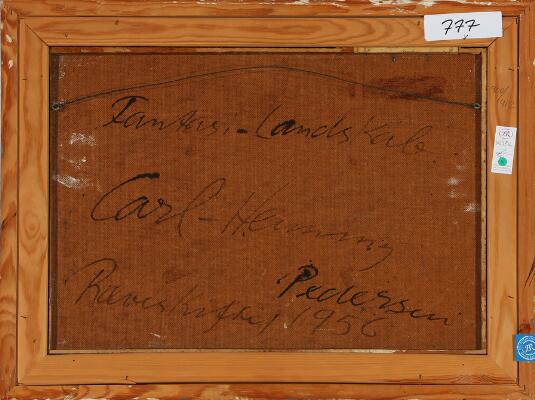 777
Fantasi-Landskab.
Carl-Henning
Pedersen
1956